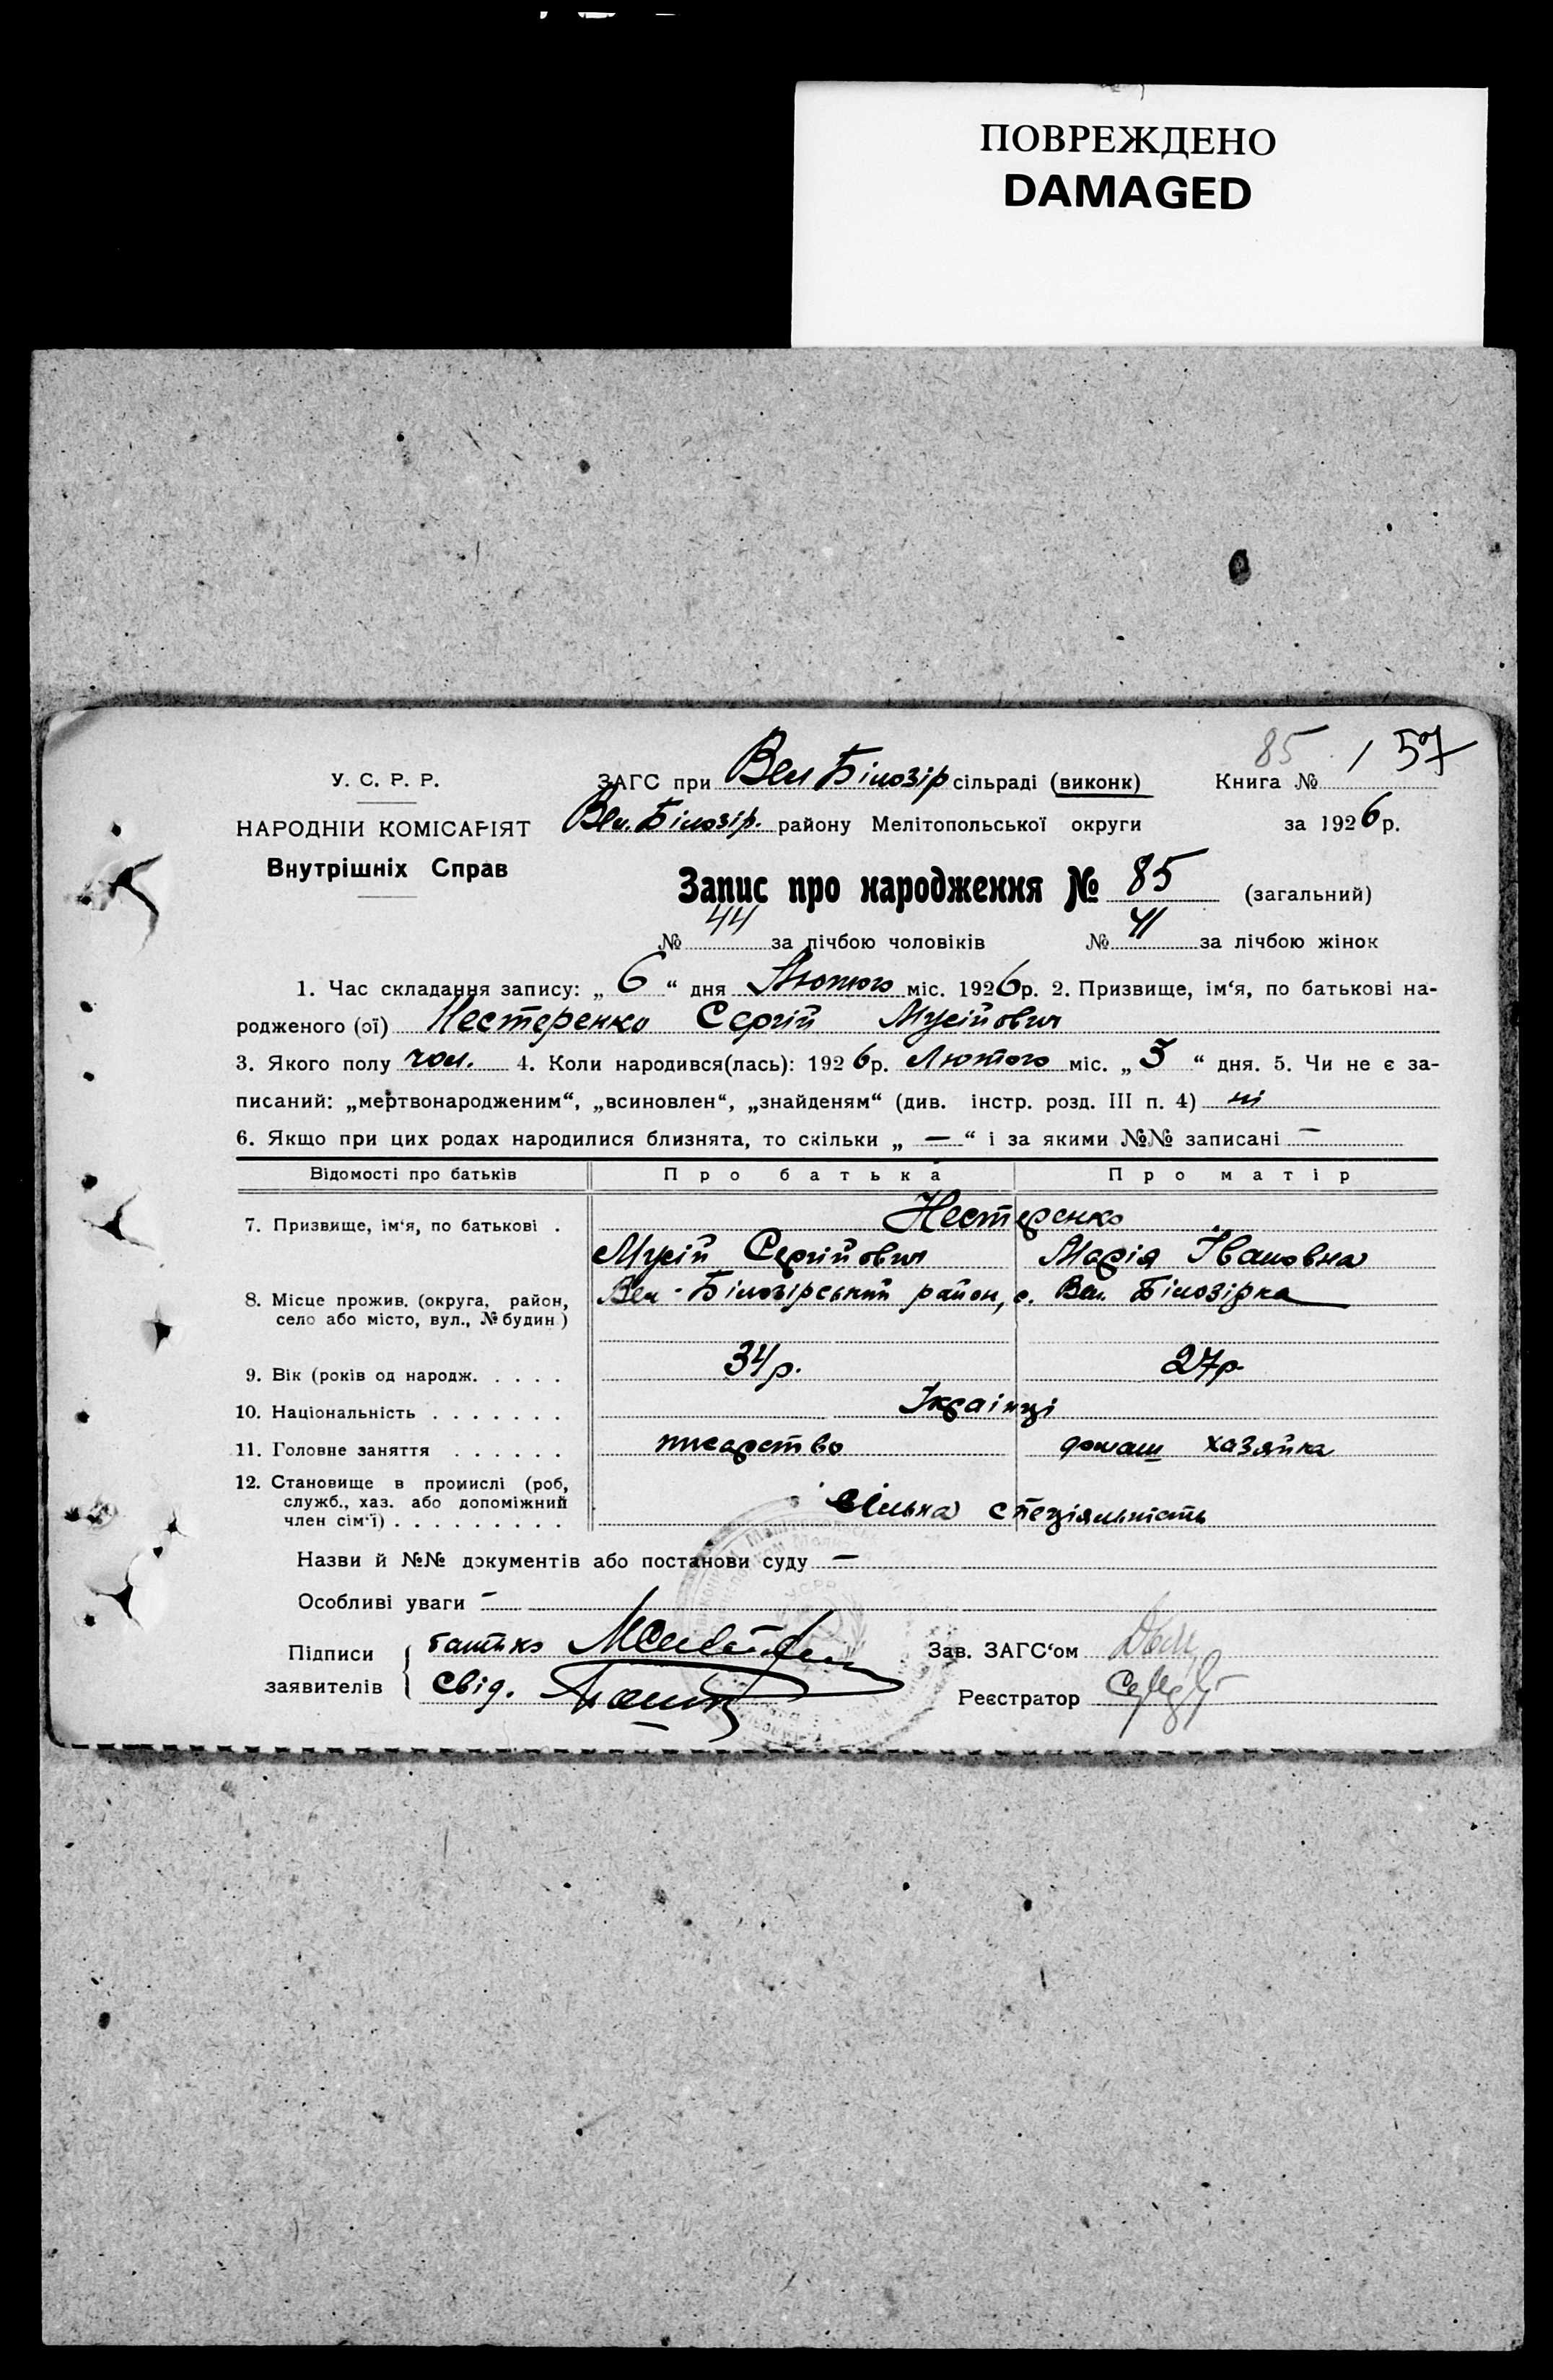 ПОВРЕЖДЕНО
DAMAGED
У. С. Р. Р.
НАРОДНІЙ КОМІСАРІЯТ
Внутрішніх Справ
ЗАГС при Вел Білозір сільраді (виконк)
85 / 57
Книга №
Вел. Білозір. району Мелітопольської округи за 1926 р.
Запис про народження № 85 (загальний)
№ 44 за лічбою чоловіків № 41 за лічбою жінок
1. Час складання запису: „ 6 “ дня Лютого міс. 1926р. 2. Призвище, ім‘я, по батькові на-
родженого (ої) Нестеренко Сергій Мусійович
3. Якого полу чол. 4. Коли народився(лась): 1926р. Лютого міс. „ 5 “ дня. 5. Чи не є за-
писаний: „мертвонародженим“, „всиновлен“, „знайденям“ (див. інстр. розд. III п. 4) ні
6. Якщо при цих родах народилися близнята, то скільки „ — “ і за якими №№ записані —
Відомості про батьків Про батька Про матір
7. Призвище, ім‘я, по батькові . Нестеренко
Мусій Сергійович Марія Івановна
8. Місце прожив. (округа, район, село або місто, вул., № будин.) Вел-Білозірський район, с. Вел. Білозірка
9. Вік (років од народж. . . . . 34 р. 27 р.
10. Національність . . . . . . . Українці
11. Головне заняття . . . . . . писарство домаш хазяйка
12. Становище в промислі (роб, служб., хаз. або допоміжний член сім‘ї) . . . . . . . . . вільна спеціяльність
Назви й №№ документів або постанови суду —
Особливі уваги —
Підписи заявителів { батько
свід.
Зав. ЗАГС‘ом
Реєстратор